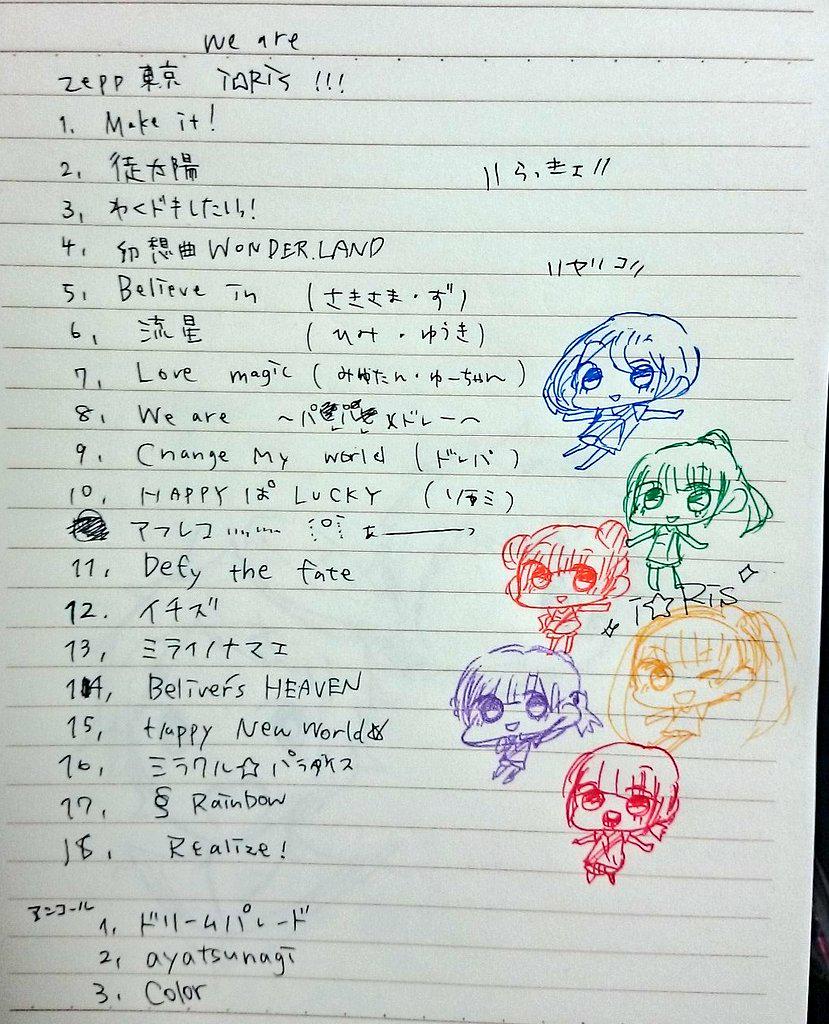 we are
zepp 東京 i☆Ris !!!
1. Make it!
2, 徒太陽
\\ らっきェ //
3, わくドキしたい!
4, 幻想曲 WONDER.LAND
\\ ヤリコ //
5, Believe in (さきさま・ず)
6, 流星 (ひみ・ゆうき)
7, Love magic (みゆたん・ゆーちゃん)
8, We are 〜 メドレー〜
9, Change My world (ドレパ)
10, HAPPY ぱ LUCKY (ソラミ)
アフレコ…… あ―――っ
11, Defy the fate
12. イチズ
i☆Ris
13, ミライノナマエ
14, Beliver's HEAVEN
15, Happy New World☆
16, ミラクル☆パラダイス
17, § Rainbow
18, Realize!
アンコール
1, ドリームパレード
2, ayatsunagi
3. Color